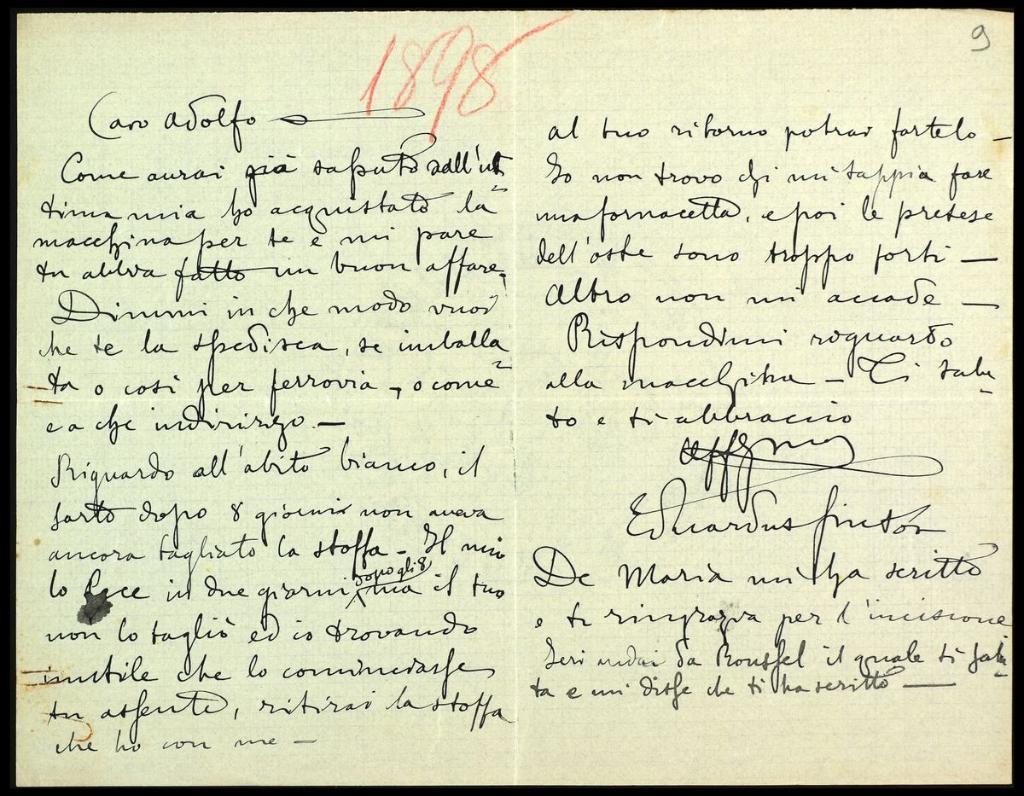 1898
9
Caro Adolfo
Come avrai già saputo dall'ul-
tima mia ho acquistato la
macchina per te e mi pare
tu abbia fatto un buon affare.
Dimmi in che modo vuoi
che te la spedisca, se imballa-
ta o così per ferrovia, o come
e a che indirizzo —
Riguardo all'abito bianco, il
sarto dopo 8 giorni non aveva
ancora tagliato la stoffa — Il mio
lo fece in due giorni dopo gli 8 ma il tuo
non lo tagliò ed io trovando
inutile che lo cominciasse
tu assente, ritirai la stoffa
che ho con me —
al tuo ritorno potrai fartelo —
Io non trovo chi mi sappia fare
una fornacetta, e poi le pretese
dell'oste sono troppo forti —
Altro non mi accade —
Rispondimi riguardo
alla macchina — Ti salu-
to e ti abbraccio
Eduardus
De Maria mi ha scritto
e ti ringrazia per l'incisione
Ieri andai da Roussel il quale ti salu-
ta e mi disse che ti ha scritto —